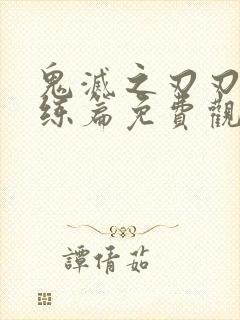 鬼滅之刃刃
练篇免費觀
譚倩茹